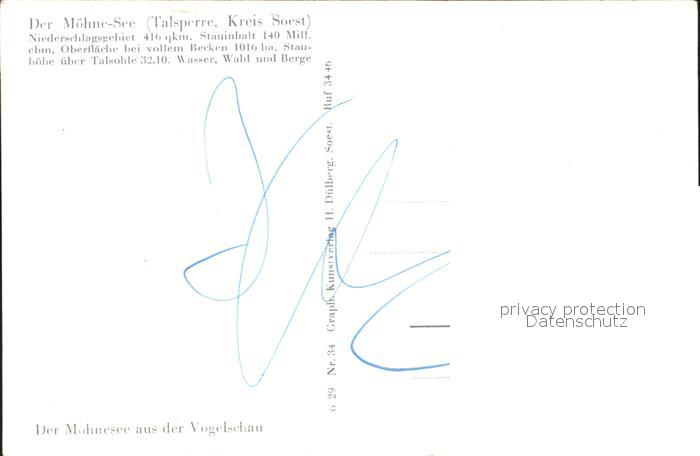 Der Möhne-See (Talsperre, Kreis Soest)
Niederschlagsgebiet 416 qkm, Stauinhalt 140 Mill.
cbm, Oberfläche bei vollem Becken 1016 ha, Stau-
höhe über Talsohle 32,10. Wasser, Wald und Berge
o 29 Nr. 34 Graph. Kunstverlag H. Dülberg, Soest. Ruf 3446
privacy protection
Datenschutz
Der Möhnesee aus der Vogelschau